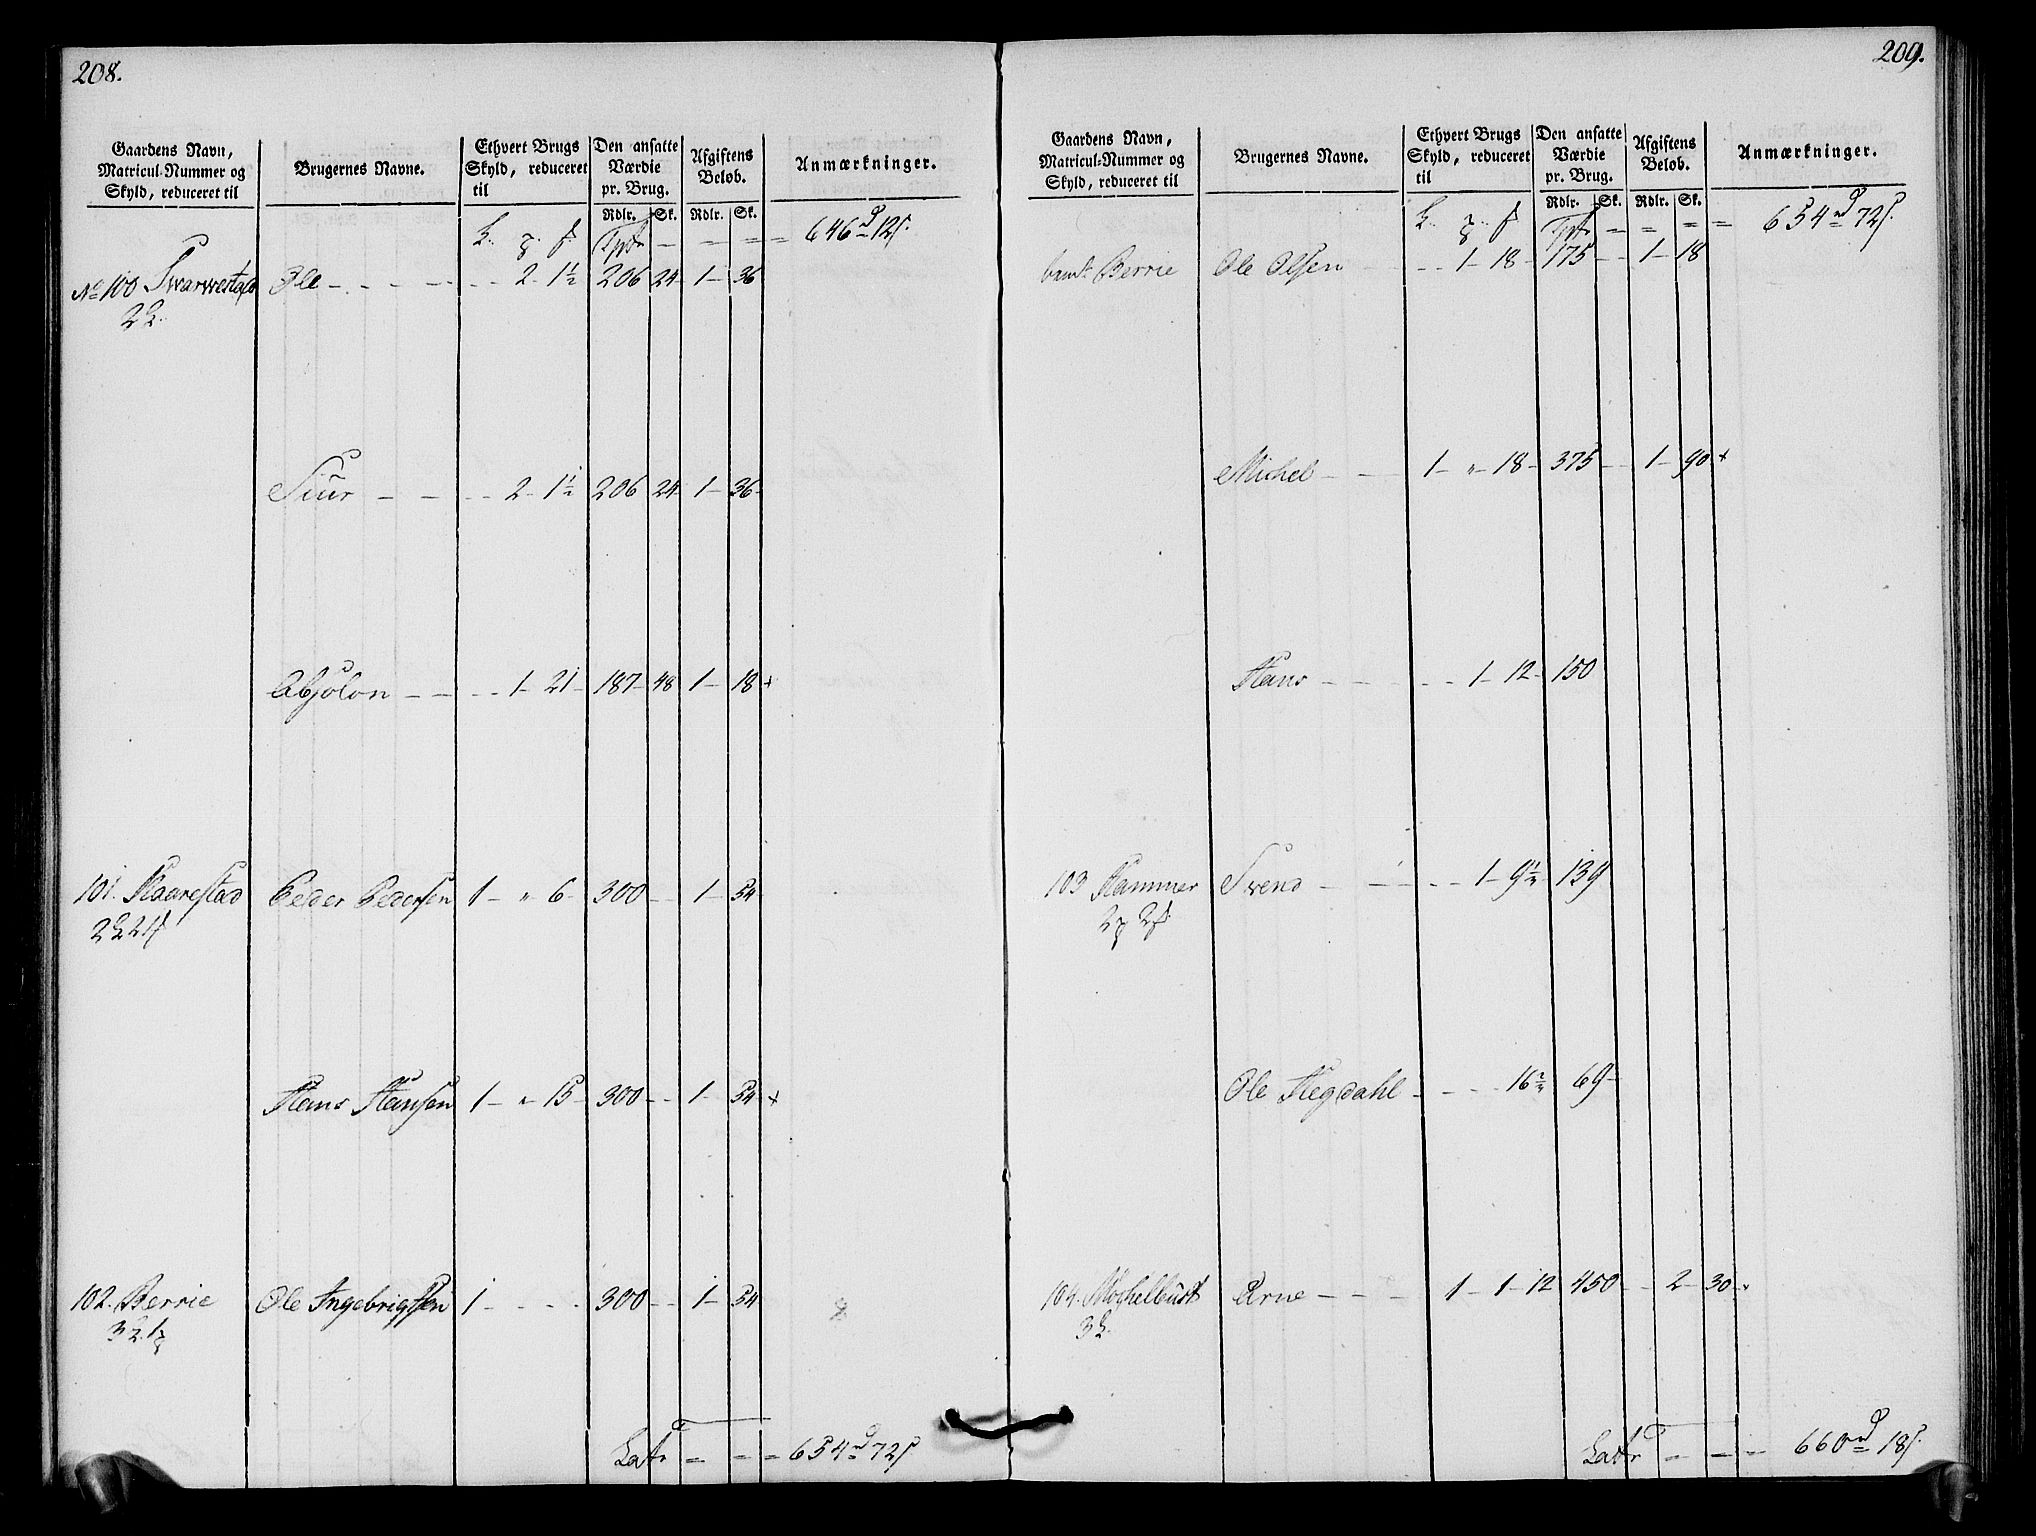 208.
Gaardens Navn, Matricul-Nummer og Skyld, reduceret til | Brugernes Navne. | Ethvert Brugs Skyld, reduceret til | Den ansatte Værdie pr. Brug. | Afgiftens Belob. | Anmærkninger.
Rdlr. | Sk. | Rdlr. | Sk.
Transpt — — = 646 rd 12 s.
No 100 Ole - - - - 2 - 1½ 206 24 1 - 36
Siur - - - 2 - 1½ 206 24 1 - 36
Absolon - - - 1 - 21 - 187 - 48 1 - 18 x
101. Haarestad Peder Pedersen 1 - " 6 - 300 - - 1 - 54
Hans Hansen 1 - " 15 - 300 - - 1 - 54 x
102. Berrie Ole Ingebrigtsen 1 - - - 300 - - 1 - 54
Latr = = = 654 rd 72 s
209.
Gaardens Navn, Matricul-Nummer og Skyld, reduceret til | Brugernes Navne. | Ethvert Brugs Skyld, reduceret til | Den ansatte Værdie pr. Brug. | Afgiftens Belob. | Anmærkninger.
Rdlr. | Sk. | Rdlr. | Sk.
Transpt = = = = 654 rd 72 s.
Berrie Ole Olsen - - - 1 - 18 - 175 - - 1 - 18
Michel - - 1 - " - 18 - 375 - - 1 - 90 x
Hans - - - - 1 - 12 - 150
103 Hammer Svend - - - - 1 - 9 139
Ole Hegdahl - - - 16 69 -
104. Arne - - - 1 - 1 - 12 450 - - 2 - 30
Latr = = = 660 rd 18 s.